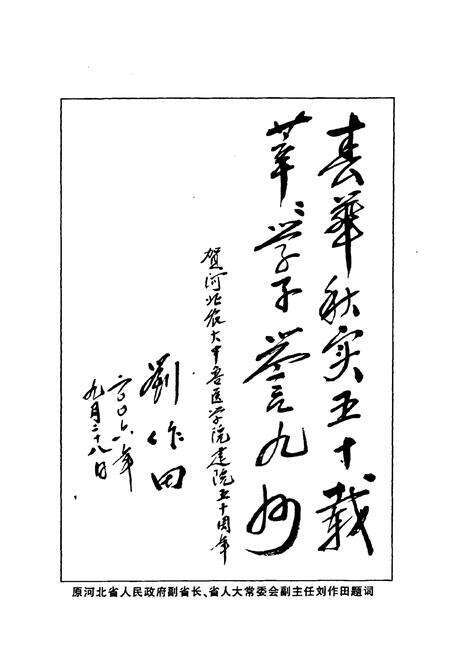 春华秋实五十载
莘〻学子誉九州
贺河北农大中兽医学院建院五十周年
劉作田
二〇〇六年
九月二十八日
原河北省人民政府副省长、省人大常委会副主任刘作田题词